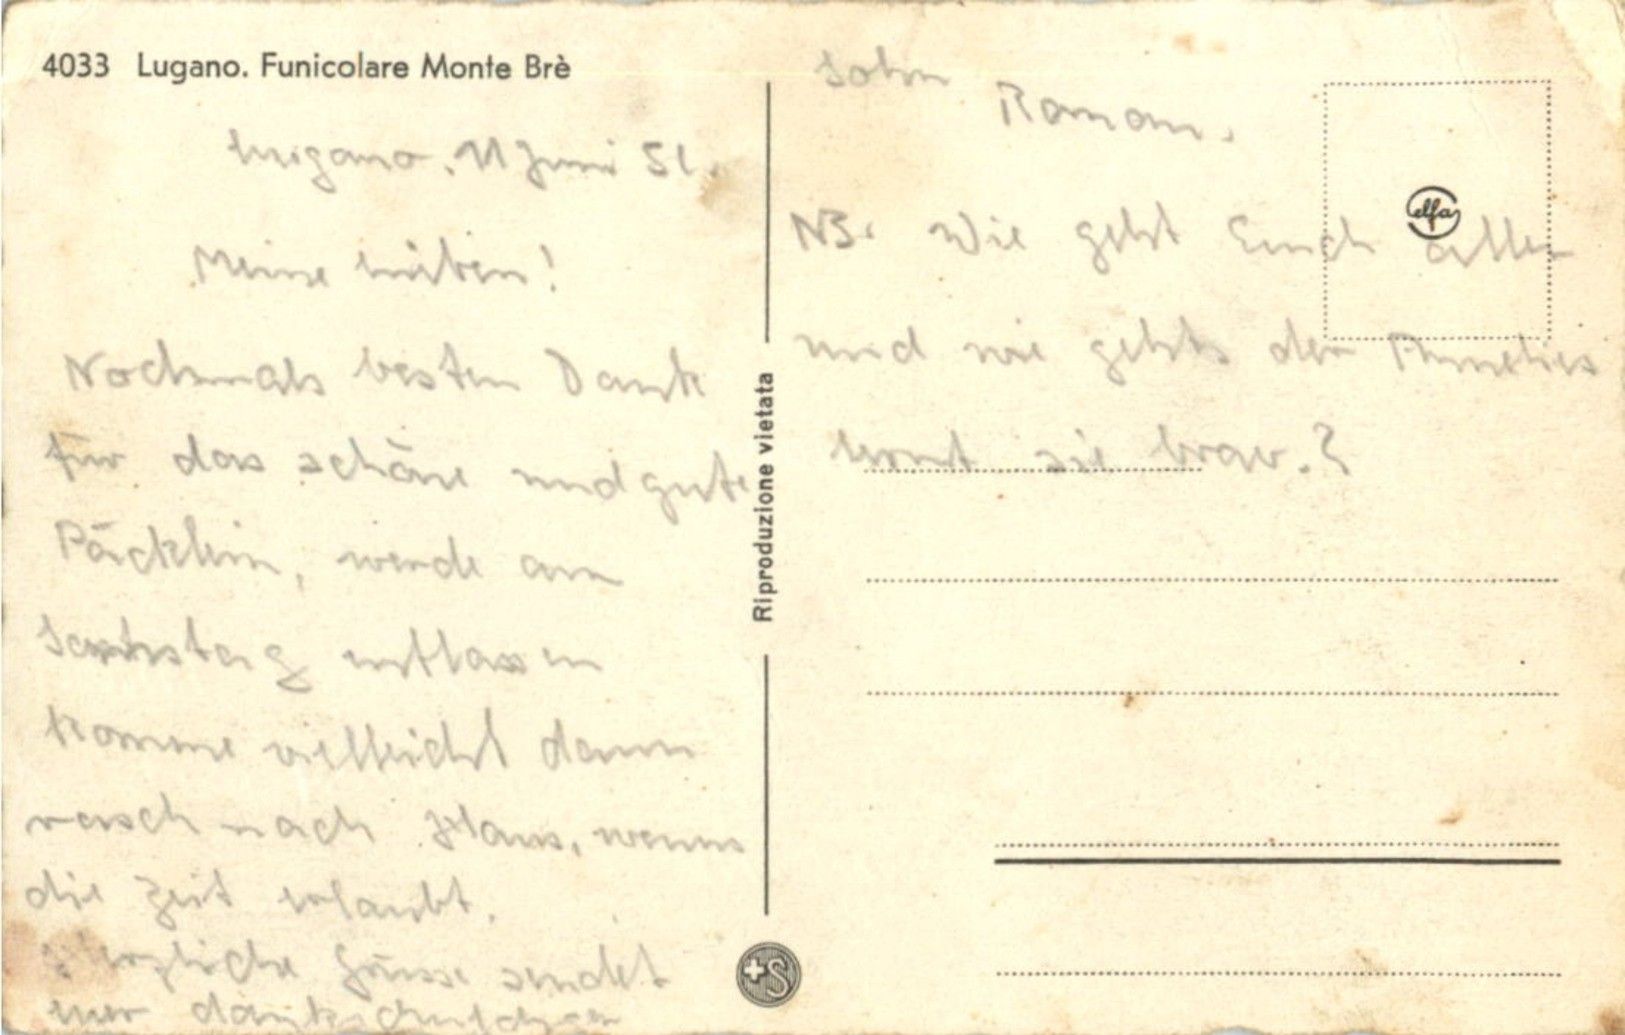 4033 Lugano. Funicolare Monte Brè
Lugano, 11 Juni 51.
Meine Lieben!
Nochmals besten Dank
für das schöne und gute
Päcklein, werde am
Samstag entlassen
komme vielleicht dann
rasch nach Haus, wenns
die Zeit erlaubt.
Herzliche Grüsse sendet
euer dankschuldiger
Sohn
Roman.
NB. Wie geht Euch allen
und wie gehts der Annelies
lernt sie brav.?
elfa
Riproduzione vietata
+S